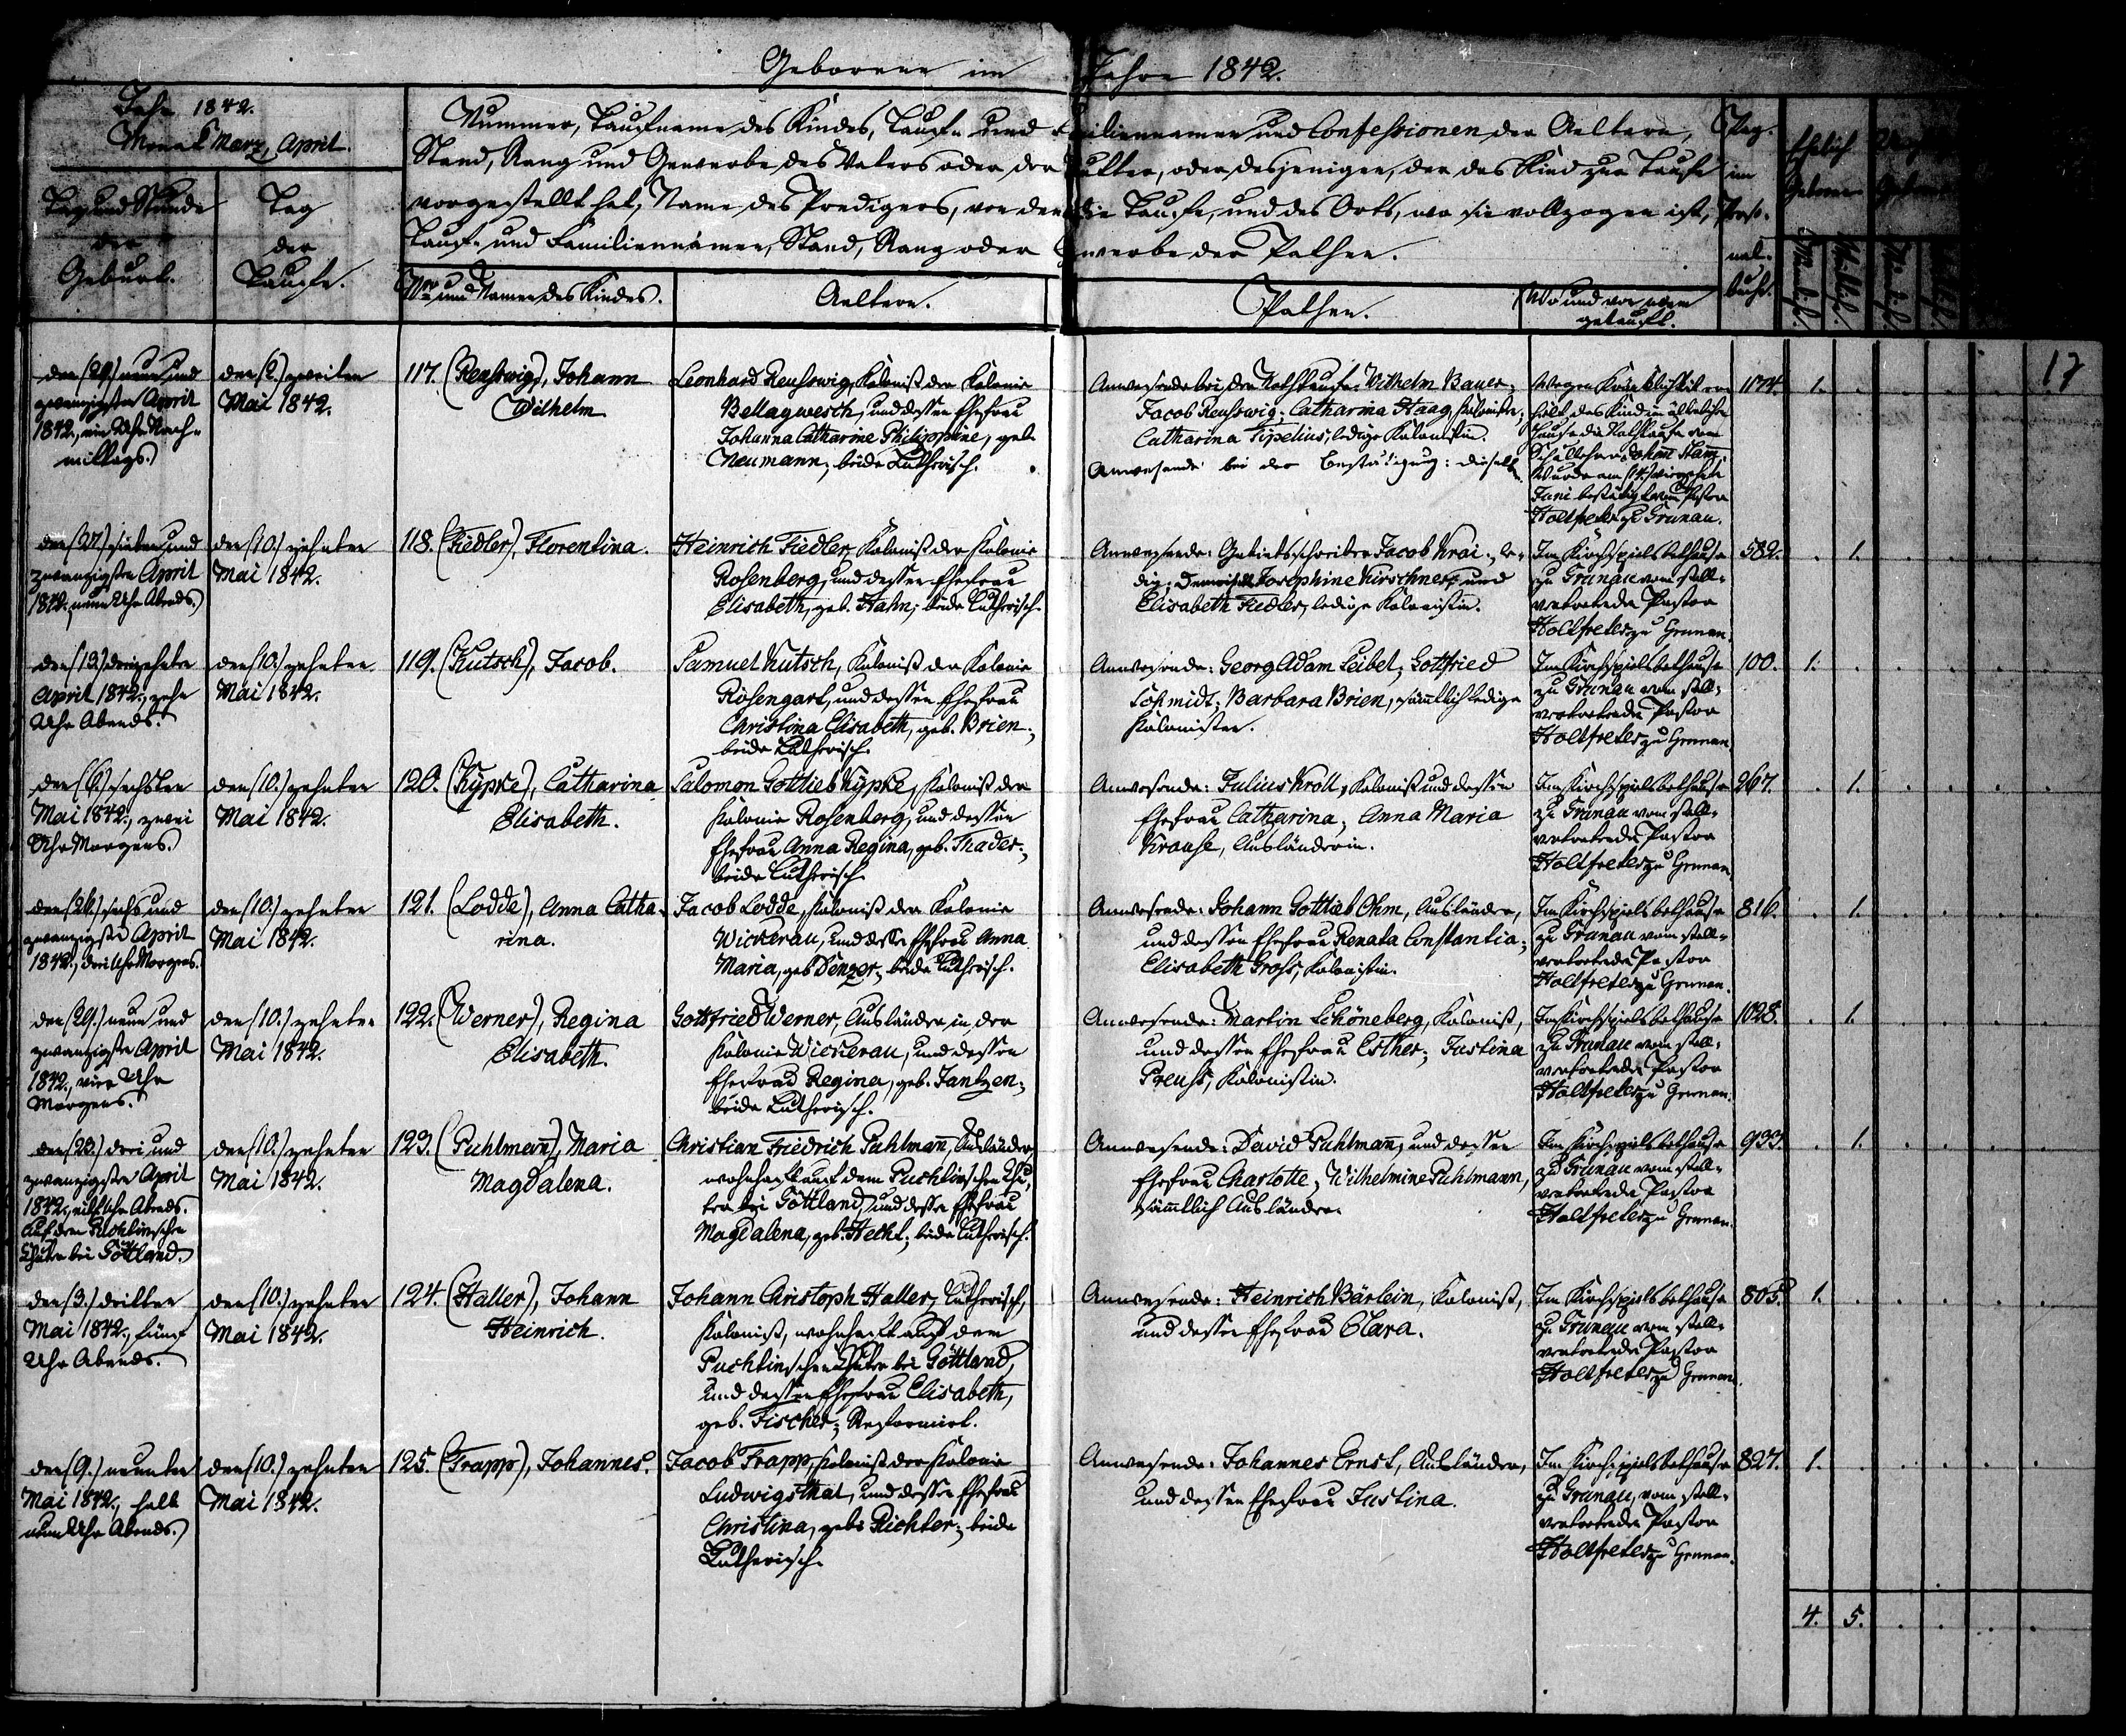 Geborene im Jahre 1842.
Jahr 1842.
Monat März, April.
Tag und Stunde
der
Geburt.
Tag
der
Taufe.
Nummer, Taufname des Kindes, Tauf- und Familiennamen und Confessionen der Aeltern,
Stand, Rang und Gewerbe des Vaters oder der Mutter, oder desjenigen, der das Kind zur Taufe
vorgestellt hat, Name des Predigers, von dem die Taufe, und des Orts, wo sie vollzogen ist,
Tauf- und Familiennamen, Stand, Rang oder Gewerbe der Pathen.
Nro und Namen des Kindes.
Aeltern.
Pathen.
Wo und von wem
getauft.
Pag.
im
Perso-
nal-
buche.
Ehelich
Geborene
Männlich.
Weiblich.
Männlich.
17
den (29.) neun und
zwanzigsten April
1842., ein Uhr Nach-
mittags.)
den (2.) zweiten
Mai 1842.
117. (Reuswig), Johann
Wilhelm
Leonhard Reuswig, Kolonist der Kolonie
Bellagwesch, und dessen Ehefrau
Johanna Catharine Philippine, geb.
Neumann; beide Lutherisch.
Anwesende bei der Nothtaufe: Wilhelm Bauer;
Jacob Reuswig; Catharina Haag, Kolonisten;
Catharina Sipelius, ledige Kolonistin.
Anwesende bei der Bestätigung: dieselben
Wegen Kränklichkeit er-
hielt das Kind im älterlichen
Hause die Nothtaufe vom
Schullehrer Johann Stam.
Wurde am (14.) vierzehnten
Juni bestätigt vom Pastor
Holtfreter zu Grunau.
1174.
1.
den (27.) sieben und
zwanzigsten April
1842. neun Uhr Abends.)
den (10.) zehnten
Mai 1842.
118. (Fiedler), Florentina.
Heinrich Fiedler, Kolonist der Kolonie
Rosenberg, und dessen Ehefrau
Elisabeth, geb. Hahn; beide Lutherisch.
Anwesende: Gebietsschreiber Jacob Krai., le-
dig; Demoiselle Josephine Kirschner; und
Elisabeth Fiedler, ledige Kolonistin.
Im Kirchspielsbethause
zu Grunau vom stell-
vertretenden Pastor
Holtfreter zu Grunau.
582.
1.
den (13.) dreizehnten
April 1842., zehn
Uhr Abends.
den (10.) zehnten
Mai 1842.
119. (Kutsch), Jacob.
Samuel Kutsch, Kolonist der Kolonie
Rosengart, und dessen Ehefrau
Christina Elisabeth, geb. Brien.;
beide Lutherisch.
Anwesende: Georg Adam Seibel; Gottfried
Schmidt; Barbara Brien, sämtlich ledige
Kolonisten.
Im Kirchspielsbethause
zu Grunau vom stell-
vertretenden Pastor
Holtfreter zu Grunau.
100.
1.
den (6.) sechsten
Mai 1842., zwei
Uhr Morgens.)
den (10.) zehnten
Mai 1842.
120. (Kypke), Catharina
Elisabeth.
Salomon Gottlieb Kypke, Kolonist der
Kolonie Rosenberg, und dessen
Ehefrau Anna Regina, geb. Thader.;
beide Lutherisch.
Anwesende: Julius Kroll, Kolonist und dessen
Ehefrau Catharina; Anna Maria
Krause, Ausländerin.
Im Kirchspielsbethause
zu Grunau vom stell-
vertretenden Pastor
Holtfreter zu Grunau.
267.
1.
den (26.) sechs und
zwanzigsten April
1842., drei Uhr Morgens.
den (10.) zehnten
Mai 1842.
121. (Lodde), Anna Catha-
rina.
Jacob Lodde, Kolonist der Kolonie
Wickerau, und dessen Ehefrau Anna
Maria, geb. Denzer; beide Lutherisch.
Anwesende: Johann Gottlieb Ohm, Ausländer,
und dessen Ehefrau Renata Constantia;
Elisabeth Gross, Kolonistin.
Im Kirchspielsbethause
zu Grunau vom stell-
vertretenden Pastor
Holtfreter zu Grunau.
816.
1.
den (29.) neun und
zwanzigsten April
1842., vier Uhr
Morgens.
den (10.) zehnten
Mai 1842.
122. (Werner), Regina
Elisabeth.
Gottfried Werner, Ausländer in der
Kolonie Wickerau, und dessen
Ehefrau Regina, geb. Jantzen;
beide Lutherisch.
Anwesende: Martin Schöneberg, Kolonist,
und dessen Ehefrau Esther; Justina
Preuss, Kolonistin.
Im Kirchspielsbethause
zu Grunau vom stell-
vertretenden Pastor
Holtfreter zu Grunau.
1028.
1.
den (23.) drei und
zwanzigsten April
1842., eilf Uhr Abends.
Auf dem Puchlinschen
Chutor bei Göttland.)
den (10.) zehnten
Mai 1842.
123. (Puhlmann), Maria
Magdalena.
Christian Friedrich Puhlmann, Ausländer,
wohnhaft auf dem Puchlinschen Chu-
tor bei Göttland, und dessen Ehefrau
Magdalena, geb. Hecht; beide Lutherisch.
Anwesende: David Puhlmann, und dessen
Ehefrau Charlotte; Wilhelmine Puhlmann,
sämmtlich Ausländer.
Im Kirchspielsbethause
zu Grunau vom stell-
vertretenden Pastor
Holtfreter zu Grunau.
933.
1.
den (3.) dritten
Mai 1842., fünf
Uhr Abends.
den (10.) zehnten
Mai 1842.
124. (Haller), Johann
Heinrich.
Johann Christoph Haller, Lutherisch,
Kolonist, wohnhaft auf dem
Puchlinschen Chutor bei Göttland,
und dessen Ehefrau Elisabeth,
geb. Fischer; Reformirt.
Anwesende: Heinrich Bärlein, Kolonist,
und dessen Ehefrau Clara.
Im Kirchspielsbethause
zu Grunau vom stell-
vertretenden Pastor
Holtfreter zu Grunau.
805.
1.
den (9.) neunten
Mai 1842., halb
neun Uhr Abends.)
den (10.) zehnten
Mai 1842.
125. (Trapp), Johannes.
Jacob Trapp, Kolonist der Kolonie
Ludwigsthal, und dessen Ehefrau
Christina, geb. Richter; beide
Lutherisch.
Anwesende: Johannes Ernst, Ausländer,
und dessen Ehefrau Justina.
Im Kirchspielsbethause
zu Grunau, vom stell-
vertretenden Pastor
Holtfreter zu Grunau.
827.
1.
4. 5.